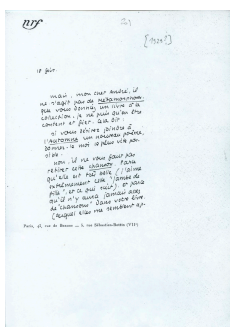 nrf
[1921?]
18 févr.
mais, mon cher André, il
ne s'agit pas de
que vous donniez un livre à la
collection, je ne puis qu'en être
content et fier. Cela dit :
si vous désirez joindre à
l'Automne un nouveau poème,
donnez-le moi le plus vite pos-
sible.
non, il ne vous faut pas
retirer cette chanson. Parce
qu'elle est très belle (j'aime
extrêmement cette "jambe de
fille", et ce qui suit), et parce
qu'il n'y aura jamais assez
de "chansons" dans votre livre.
(auquel elles me semblent ap-
Paris, 43, rue de Beaune — 5, rue Sébastien-Bottin (VIIe)